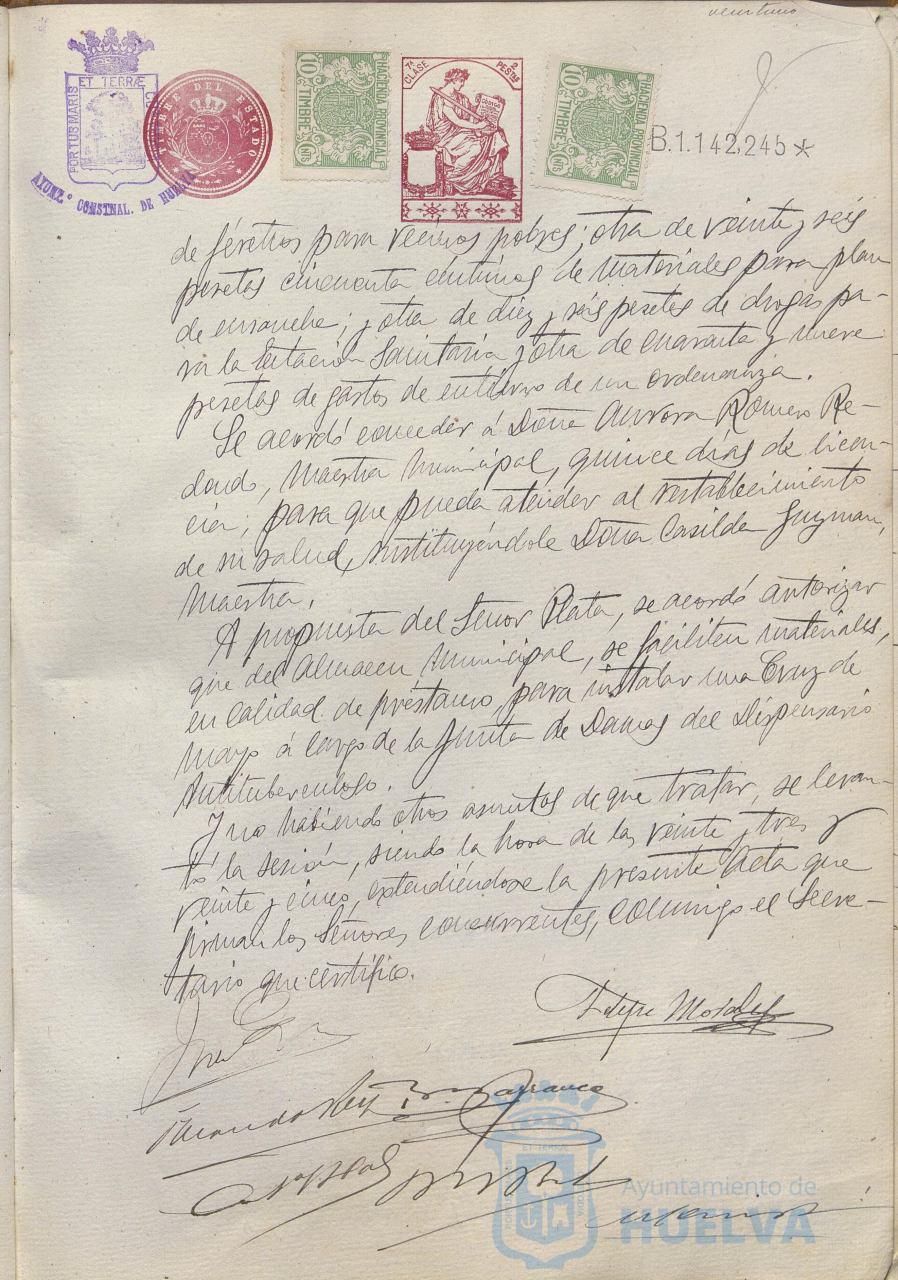 PORTUS MARIS ET TERRÆ CUSTODIA
AYUNT.º CONSTNAL. DE HUELVA
TIMBRE DEL ESTADO
HACIENDA PROVINCIAL
10 Cts
TIMBRE
7ª CLASE
2 PESTAS
HACIENDA PROVINCIAL
10 Cts
TIMBRE
B.1.142.245*
de féretros para vecinos pobres; otra de veinte y seis
pesetas cincuenta centimos de materiales para plan
de ensanche; y otra de diez y seis pesetas de drogas pa-
ra la Estación Sanitaria y otra de cuarenta y nueve
pesetas de gastos de entierro de un ordenanza.
Se acordó conceder á Doña Aurora Romero Re-
dondo, Maestra Municipal, quince días de licen-
cia, para que pueda atender al restablecimiento
de su salud, sustituyéndole Doña Casilda Guzman,
Maestra.
A propuesta del Señor Plata, se acordó autorizar
que del Almacen Municipal, se faciliten materiales,
en calidad de préstamo, para instalar una Cruz de
Mayo á cargo de la Junta de Damas del Dispensario
Antituberculoso.
Y no habiendo otros asuntos de que tratar, se levan-
tó la sesión, siendo la hora de las veinte y tres y
veinte y cinco, extendiéndose la presente Acta que
firman los Señores concurrentes, conmigo el Secre-
tario que certifico.
Barranco
Ayuntamiento de
HUELVA